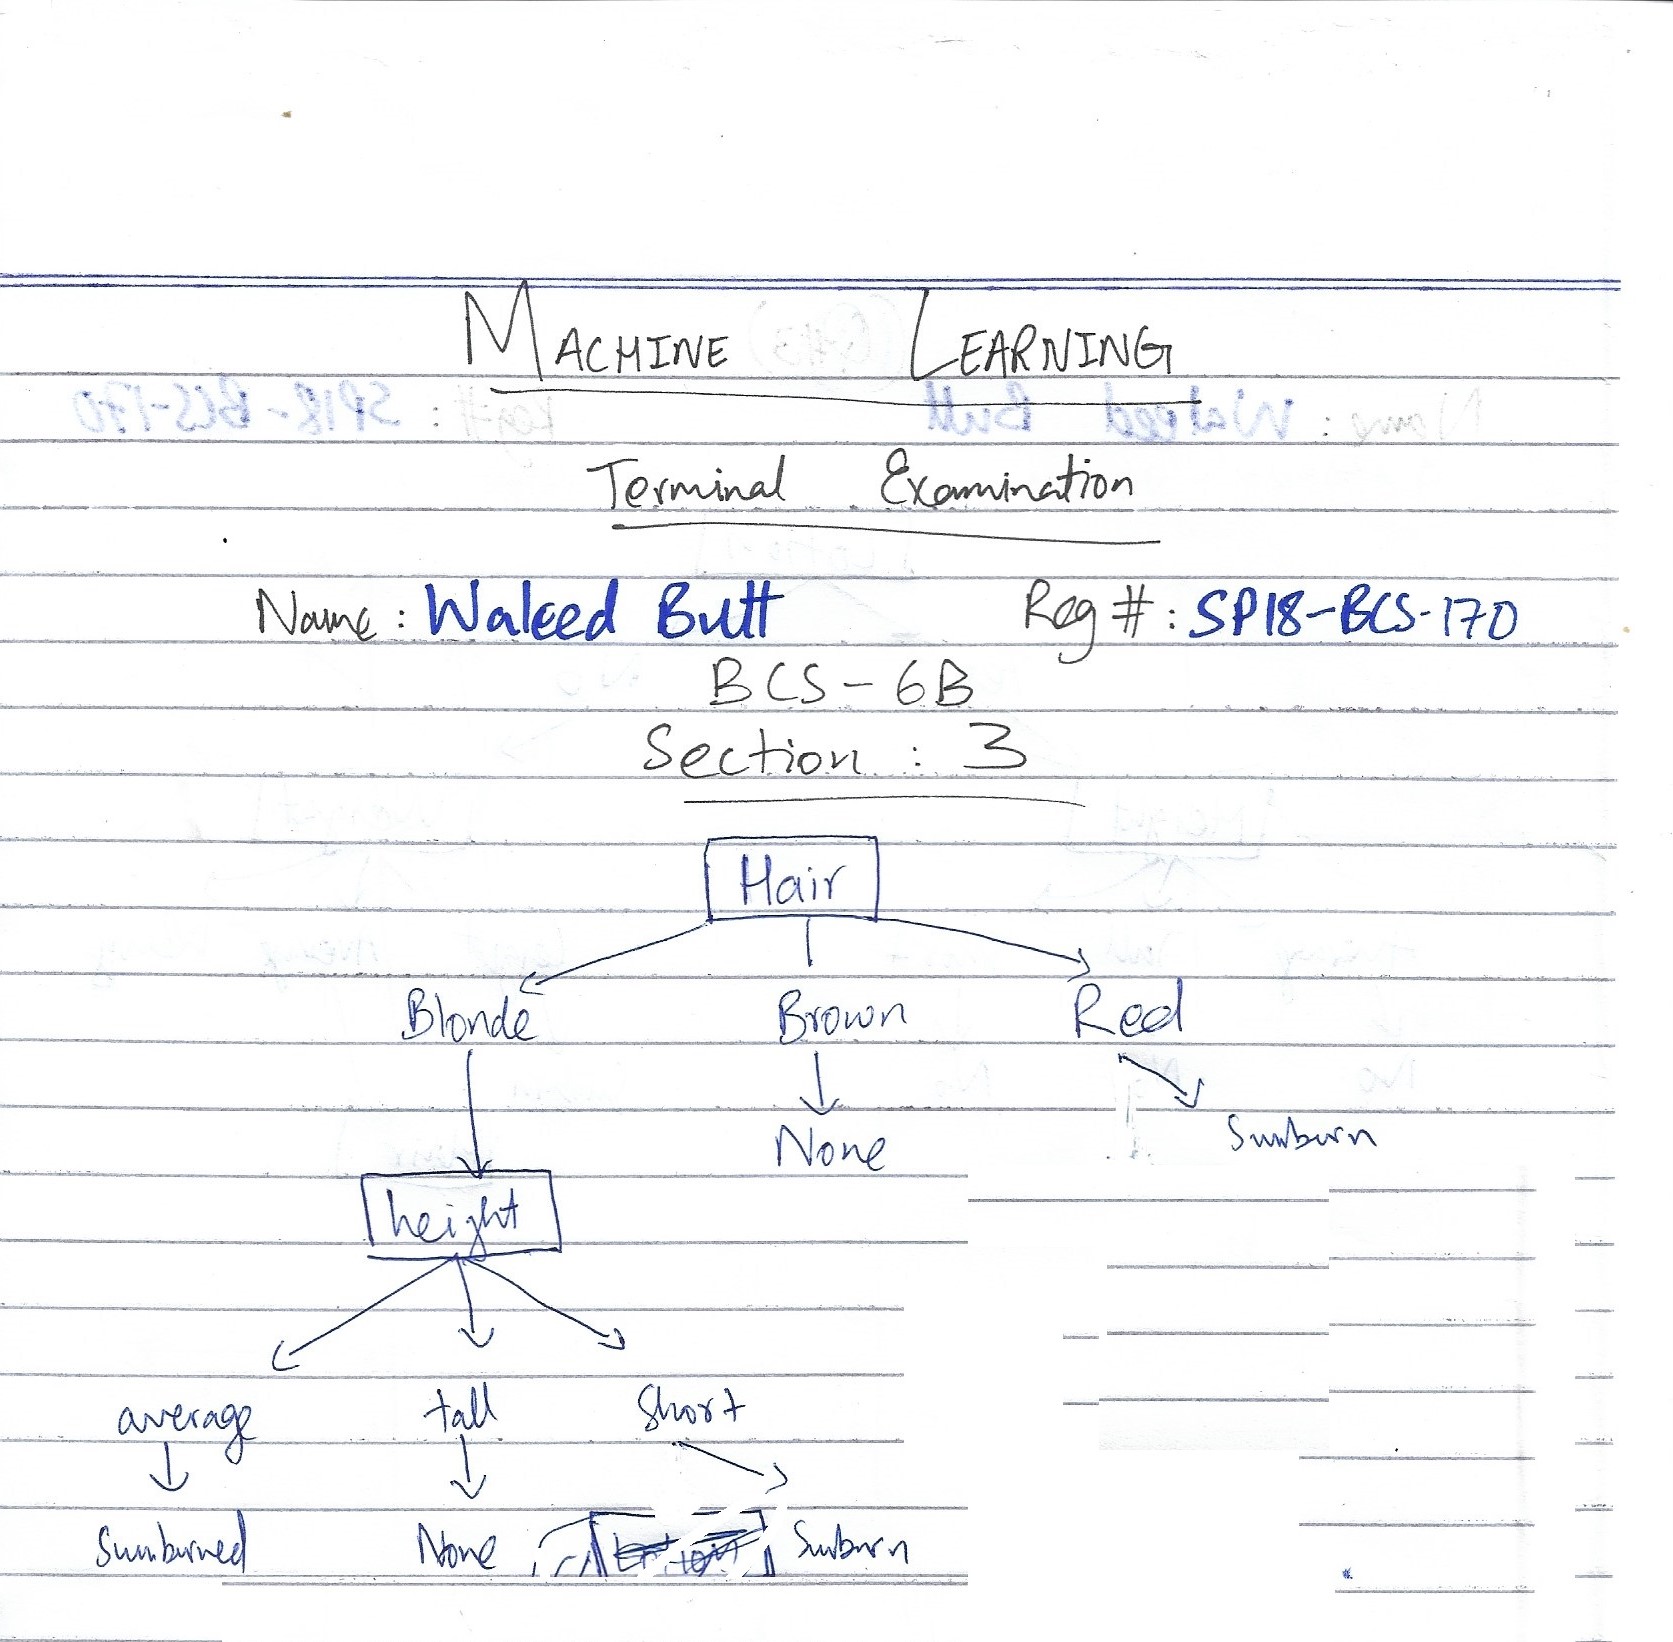 MACHINE LEARNING
Terminal Examination
Name: Waleed Butt Reg #: SP18-BCS-170
BCS-6B
Section: 3
Hair
Blonde Brown Red
None Sunburn
height
average tall Short
Sunburned None Sunburn